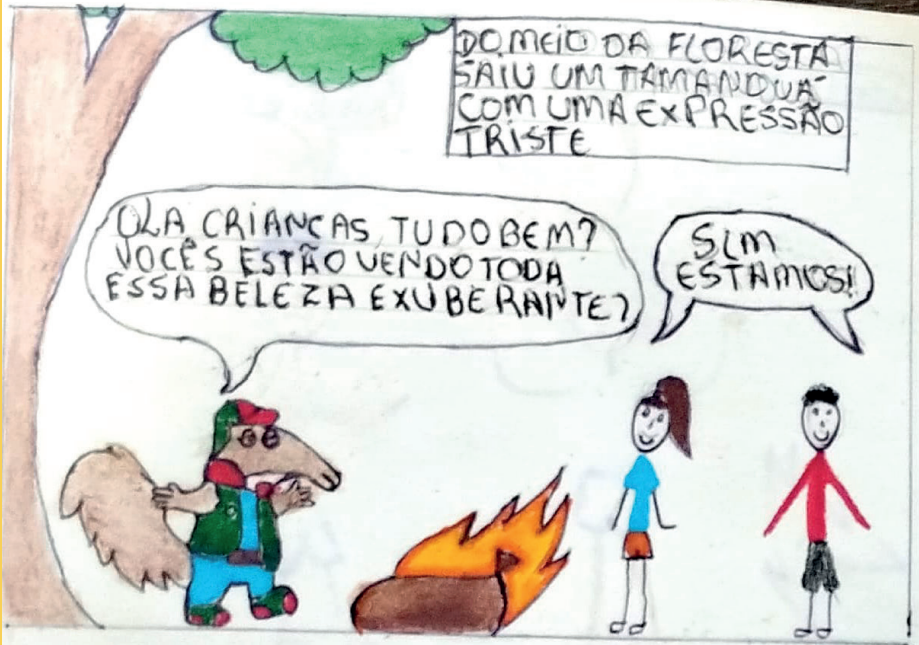 DO MEIO DA FLORESTA
SAIU UM TAMANDUÁ
COM UMA EXPRESSÃO
TRISTE
OLA CRIANCAS, TUDO BEM?
VOCÊS ESTÃO VENDO TODA
ESSA BELEZA EXUBERANTE?
SIM
ESTAMOS!